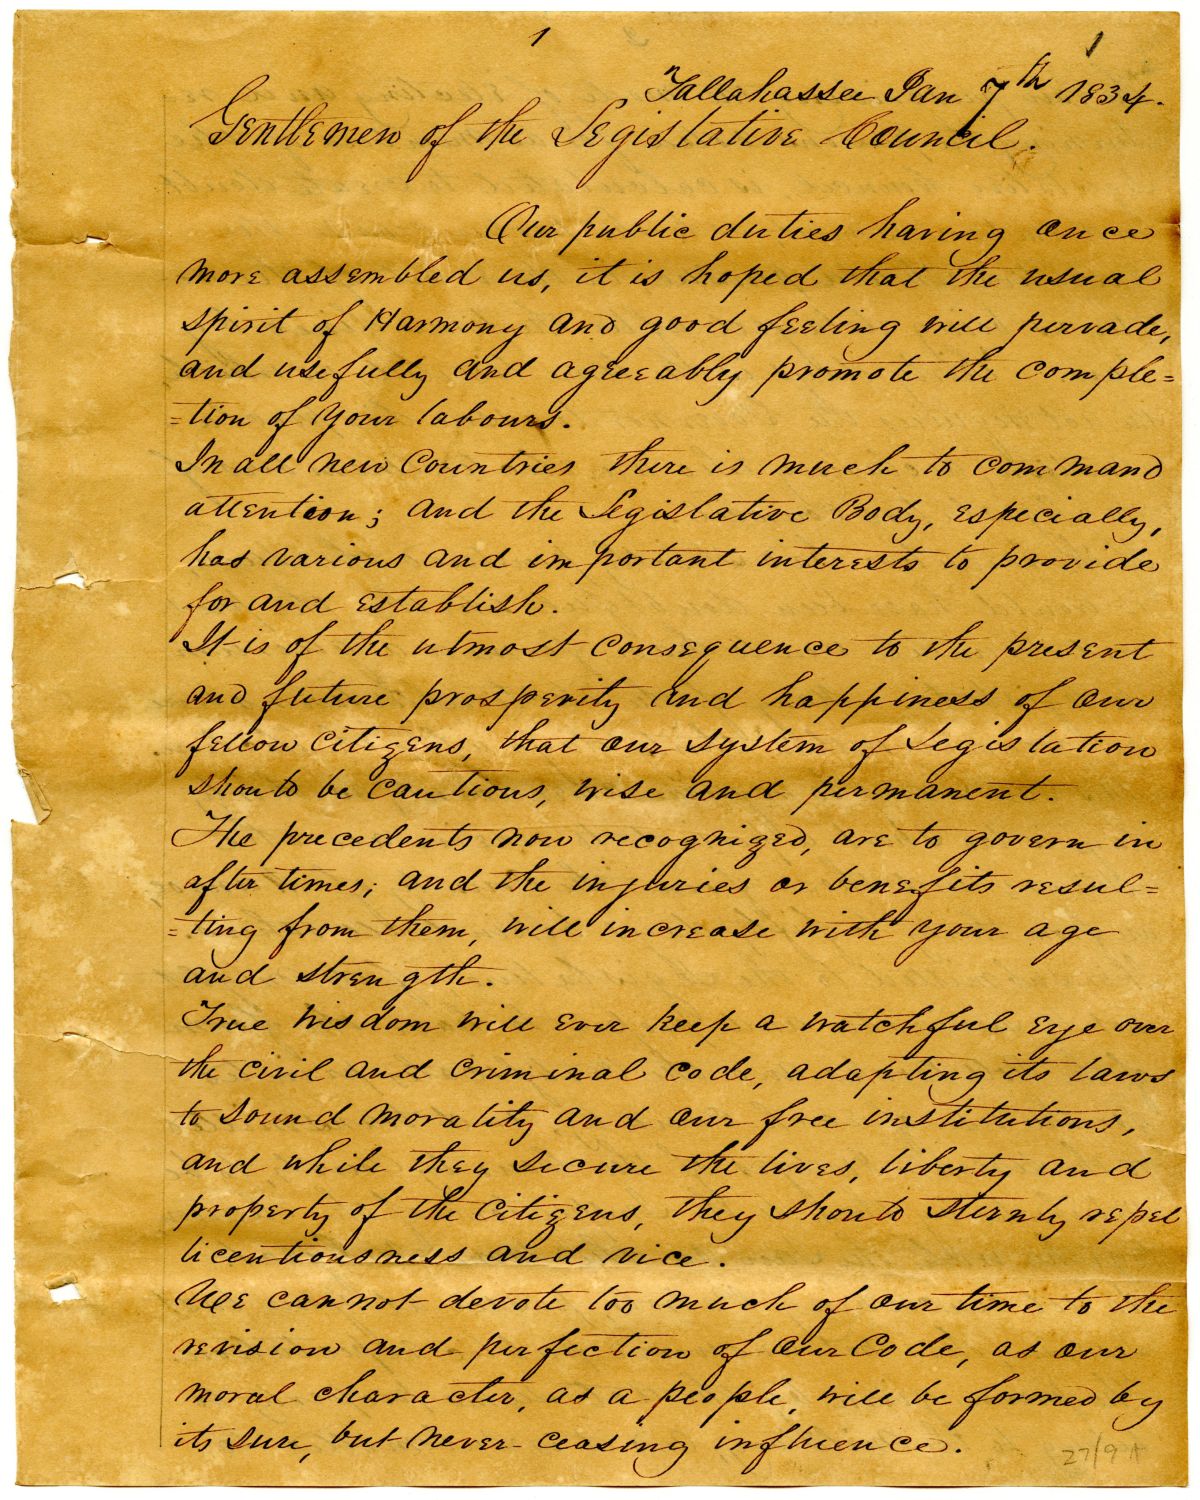 1
1
Tallahassee Jan 7th 1834.
Gentlemen of the Legislative Council.
Our public duties having once
more assembled us, it is hoped that the usual
spirit of Harmony and good feeling will pervade,
and usefully and agreeably promote the comple=
=tion of your labours.
In all new Countries there is much to command
attention; and the Legislative Body, especially,
has various and important interests to provide
for and establish.
It is of the utmost consequence to the present
and future prosperity and happiness of our
fellow citizens, that our system of Legislation
should be cautious, wise and permanent.
The precedents now recognized, are to govern in
after times; and the injuries or benefits resul=
=ting from them, will increase with your age
and strength.
True wisdom will ever keep a watchful eye over
the civil and criminal code, adapting its laws
to sound morality and our free institutions,
and while they secure the lives, liberty and
property of the Citizens, they should sternly repel
licentiousness and vice.
We cannot devote too much of our time to the
revision and perfection of our Code, as our
moral character, as a people, will be formed by
its sure, but never-ceasing influence.
27/9 A